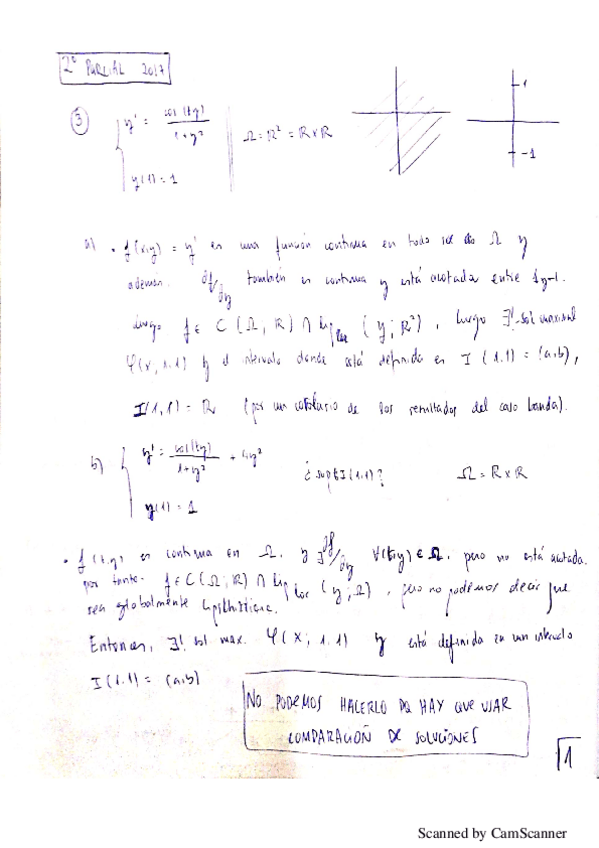 2º PARCIAL 2017
③ { y' = cos(ty) / 1+y² Ω = R² = R×R 1
y(1) = 1 -1
a) • f(x,y) = y' es una función continua en todo Ω y
además. ∂f/∂y también es continua y está acotada entre 1 y -1.
Luego f ∈ C(Ω; R) ∩ Lip loc (y; R²), luego ∃! sol maximal
φ(x, 1.1) y el intervalo donde está definida es I(1.1) = (a,b),
I(1,1) = R (por un corolario de los resultados del caso banda).
b) { y' = cos(ty) / 1+y² + 4y² ¿ sup I(1.1)? Ω = R×R
y(1) = 1
• f(t,y) es continua en Ω. y ∃ ∂f/∂y ∀(t,y) ∈ Ω. pero no está acotada.
por tanto. f ∈ C(Ω; R) ∩ Lip loc (y; Ω), pero no podemos decir que
sea globalmente Lipschitziana.
Entonces, ∃! sol max. φ(x; 1.1) y está definida en un intervalo
I(1.1) = (a,b)
NO PODEMOS HACERLO PQ HAY QUE USAR
COMPARACIÓN DE SOLUCIONES
1
Scanned by CamScanner